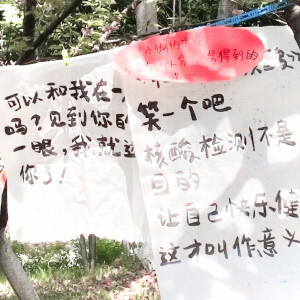 可以和我在一
吗?见到你的
一眼,我就
你了!
易得到的
笑一个吧
核酸检测不是
目的
让自己快乐健
这才叫作意义